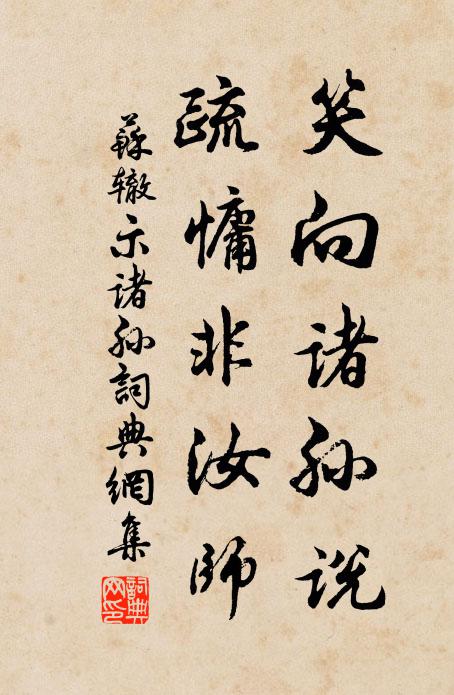 笑向诸孙说
疏慵非汝师
蘇辙示诸孙詞典網集
詞典網印